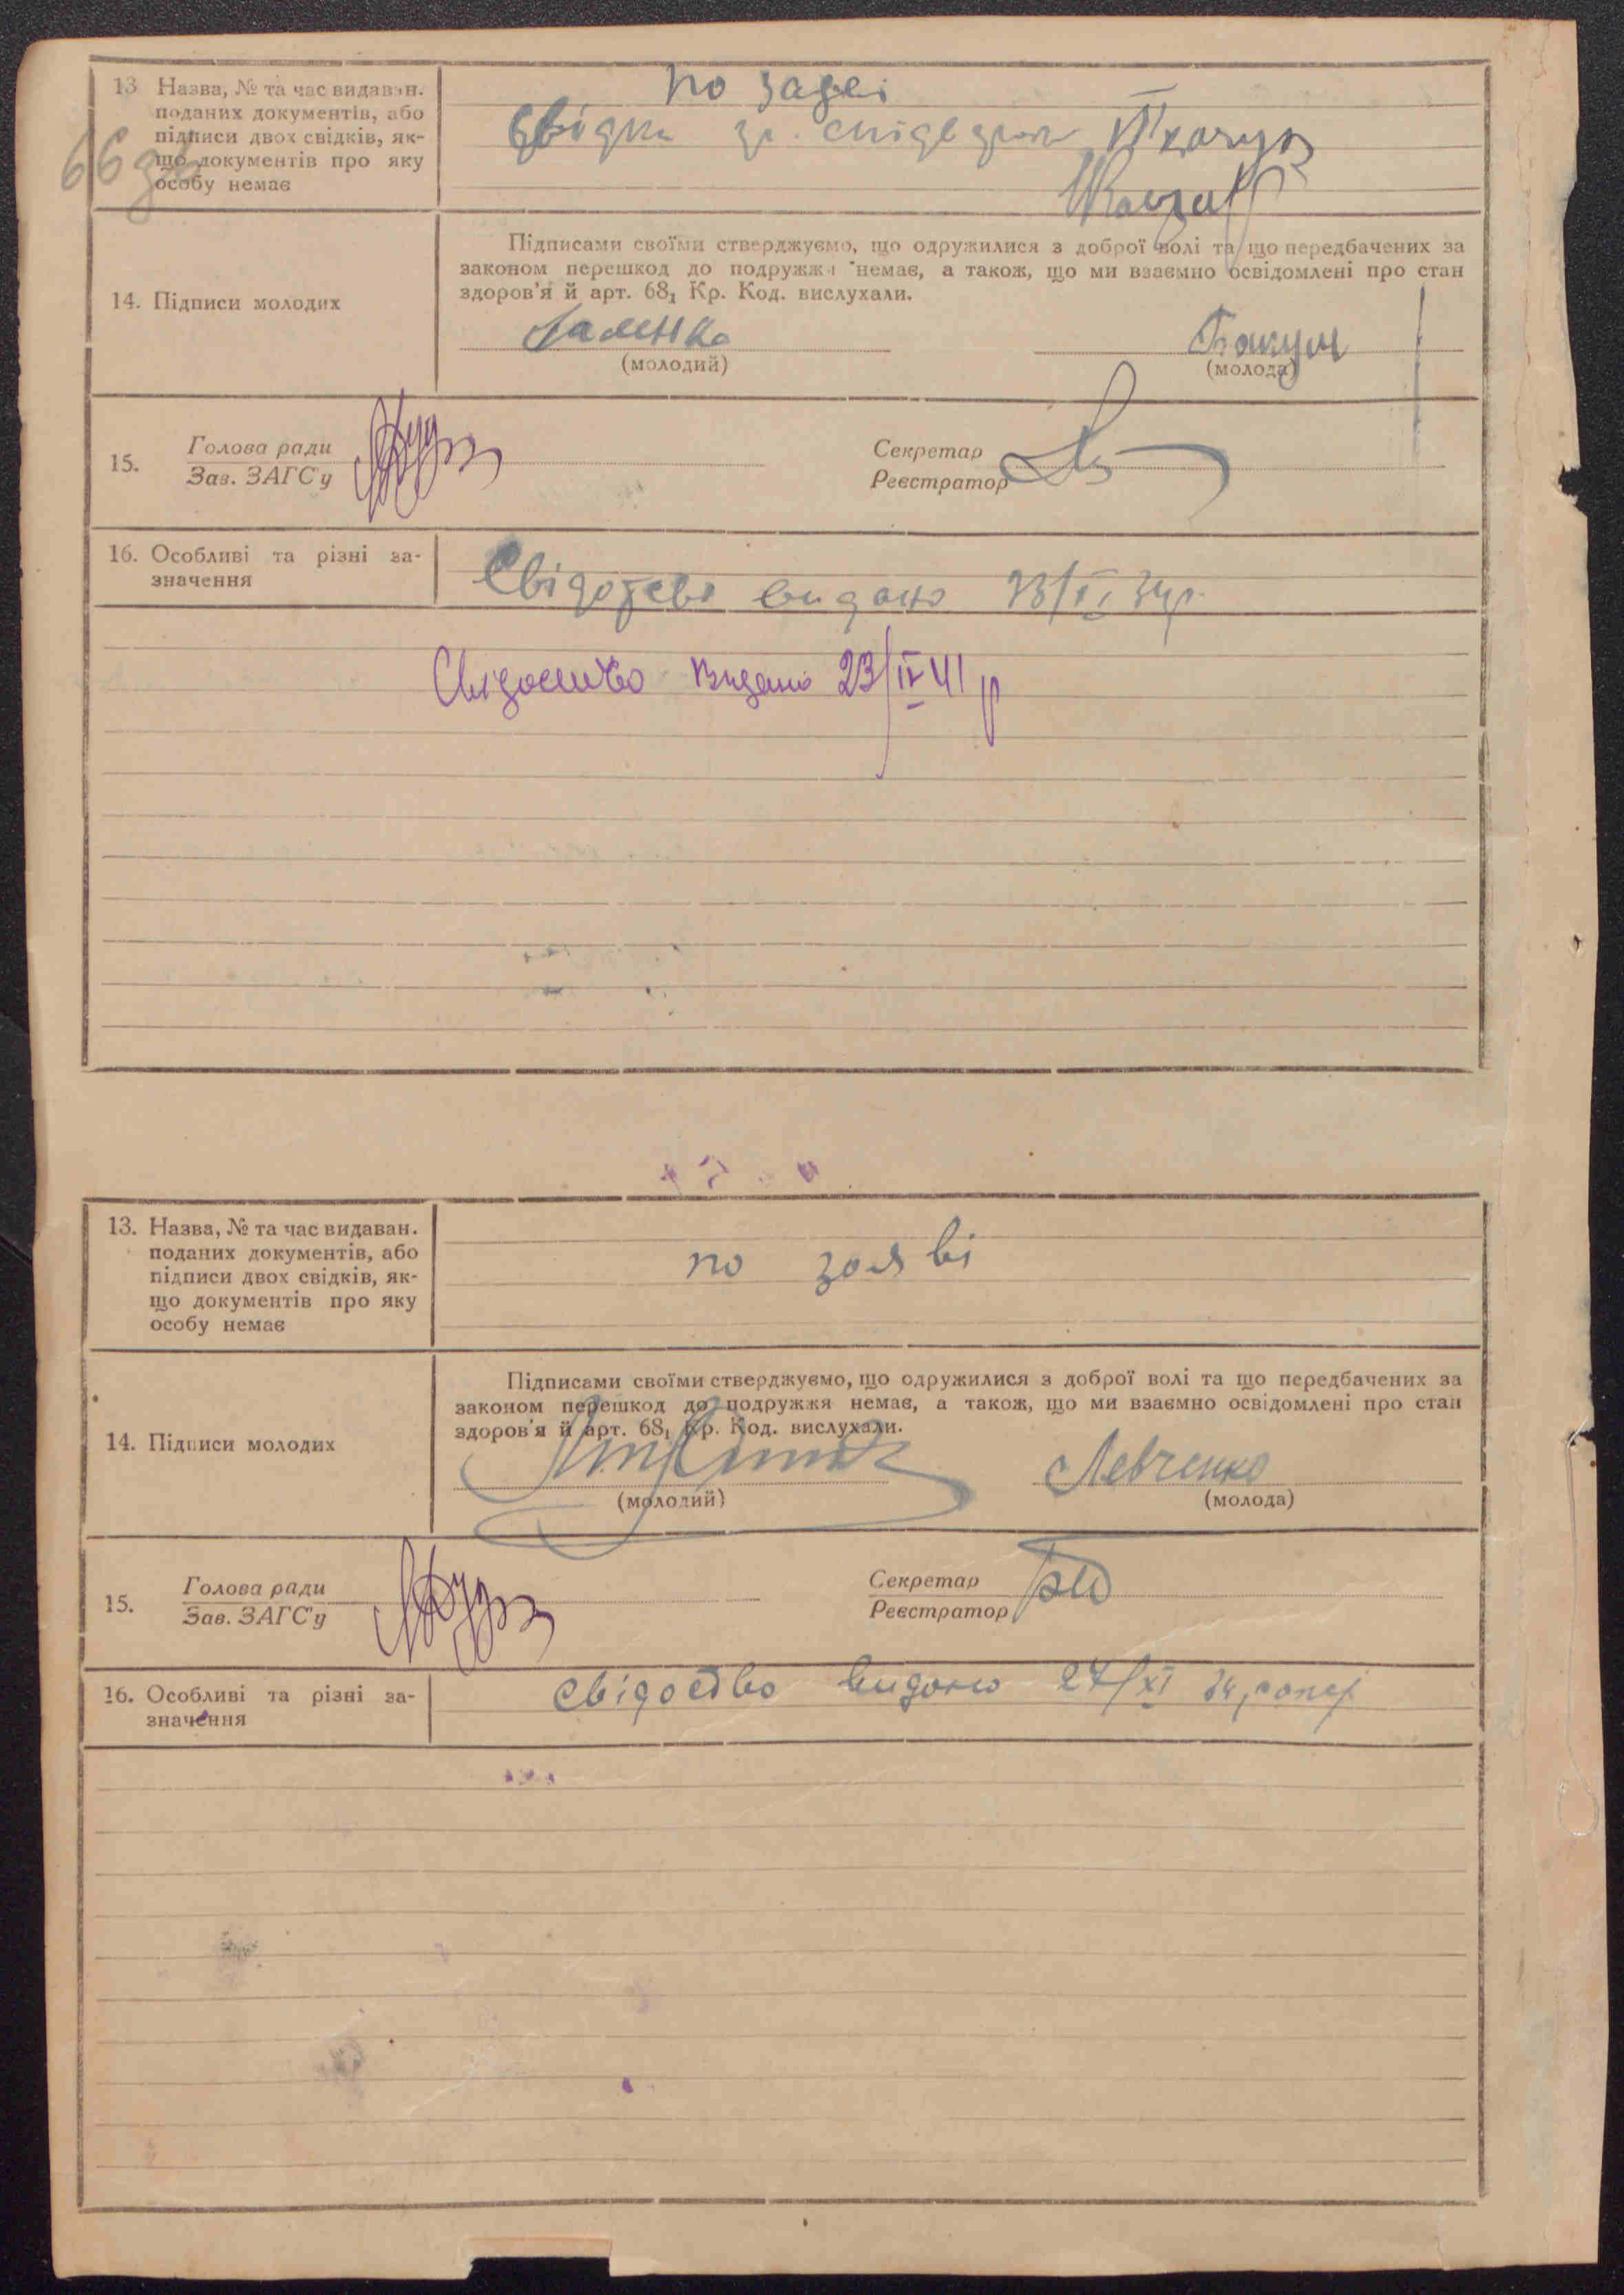 66 зв
13 Назва, № та час видаван.
поданих документів, або
підписи двох свідків, як-
що документів про яку
особу немає
по заяві
свідки
14. Підписи молодих
Підписами своїми стверджуємо, що одружилися з доброї волі та що передбачених за
законом перешкод до подружжя немає, а також, що ми взаємно освідомлені про стан
здоров'я й арт. 68₁ Кр. Код. вислухали.
(молодий)
Бакум
(молода)
15.
Голова ради
Зав. ЗАГС'у
Секретар
Реєстратор
16. Особливі та різні за-
значення
Свідоцтво видано 23/XI 34р.
Свідоцтво видано 23/IV 41 р
13. Назва, № та час видаван.
поданих документів, або
підписи двох свідків, як-
що документів про яку
особу немає
по заяві
14. Підписи молодих
Підписами своїми стверджуємо, що одружилися з доброї волі та що передбачених за
законом перешкод до подружжя немає, а також, що ми взаємно освідомлені про стан
здоров'я й арт. 68₁ Кр. Код. вислухали.
Левченко
(молодий)
(молода)
15.
Голова ради
Зав. ЗАГС'у
Секретар
Реєстратор
16. Особливі та різні за-
значення
свідоство видано 27/XI 34